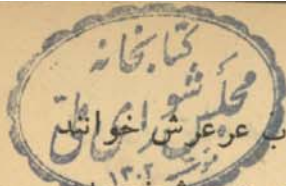 کتابخانه
مجلس شورای ملی
ب عرعرش خوانند
۱۳۰۲